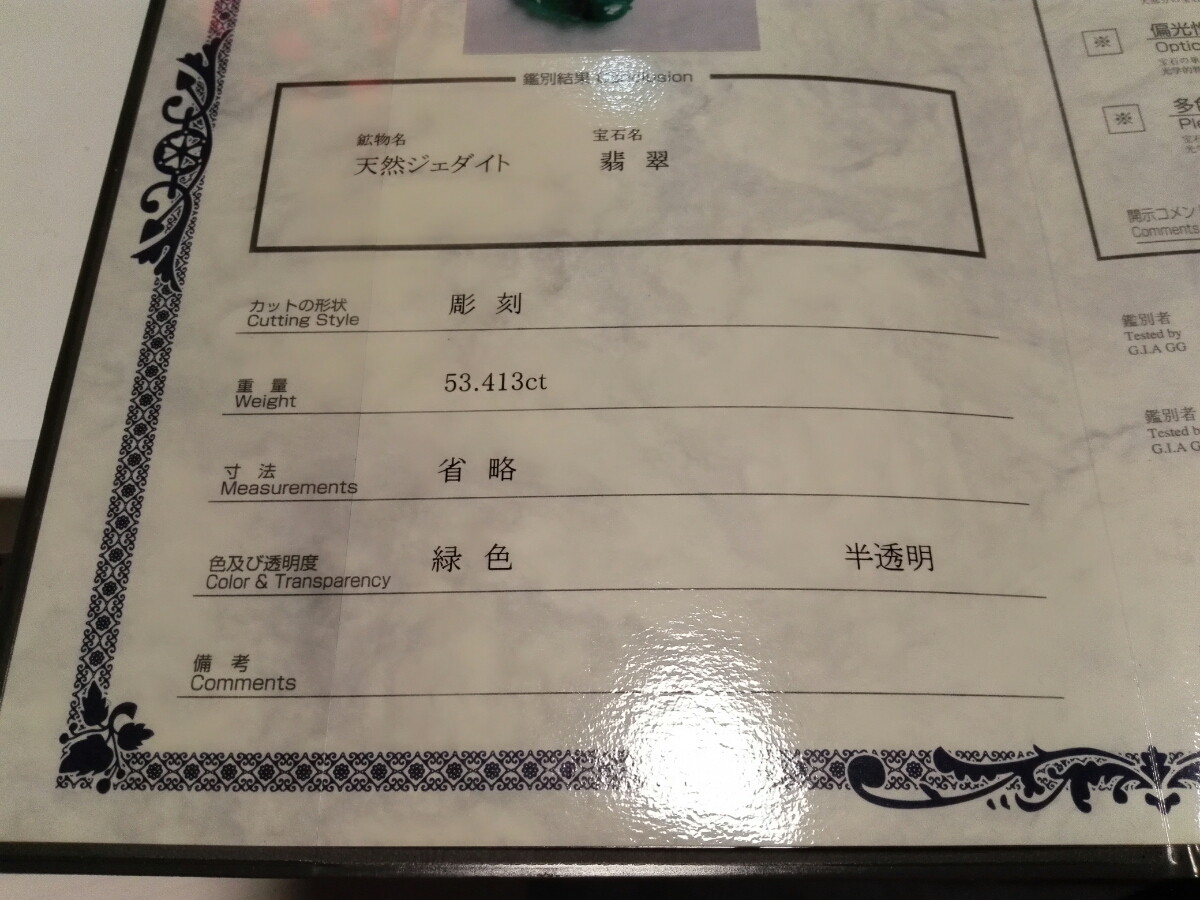 鑑別結果 Conclusion
鉱物名
宝石名
天然ジェダイト
翡 翠
カットの形状
Cutting Style
彫 刻
重 量
Weight
53.413ct
寸 法
Measurements
省 略
色及び透明度
Color & Transparency
緑 色
半透明
備 考
Comments
※
偏光性
Optic
※
開示コメント
Comments
鑑別者
Tested by
G.I.A GG
鑑別者
Tested b
G.I.A G